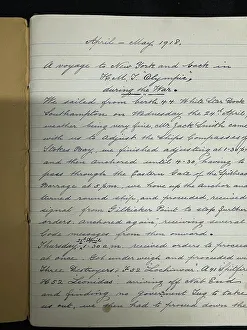 April – May 1918.
A voyage to New York and back in
H.M.T. "Olympic",
during the War.
We sailed from berth 44 White Star Dock
Southampton on Wednesday the 24th April,
weather being very fine, Mr Jack Smith came
with us to adjust the Ships Compasses off
Stokes Bay, we finished adjusting at 1.30
and then anchored until 4.30, having to
pass through the Eastern Gate of the Spithead
Barrage at 5 pm. we hove up the anchor and
turned round ship, and proceeded, received
signal from Gilkicker Point to stop further
orders. Anchored again, receiving several
Code messages from then onward.
Thursday 25th April 1.30 a.m. received orders to proceed
at once. Got underway and proceeded with
Three Destroyers; F.02 Lochinvar A.94
H.52 Leonidas arriving off Nab End
and finding no Government Tug to take
us out, we then had to proceed down the